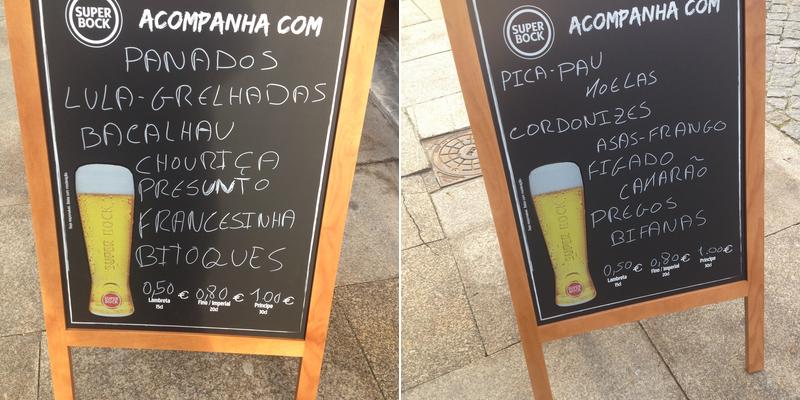 SUPER BOCK
ACOMPANHA COM
PANADOS
LULA-GRELHADAS
BACALHAU
CHOURIÇA
PRESUNTO
FRANCESINHA
BITOQUES
SUPER BOCK
SUPER BOCK
0,50 € 0,80 € 1.00 €
Lambreta Fino / Imperial Príncipe
15cl 20cl 30cl
SUPER BOCK
ACOMPANHA COM
PICA-PAU
MOELAS
CORDONIZES
ASAS-FRANGO
FIGADO
CAMARÃO
PREGOS
BIFANAS
SUPER BOCK
SUPER BOCK
0,50 € 0,80 € 1.00 €
Lambreta Fino / Imperial Príncipe
15cl 20cl 30cl